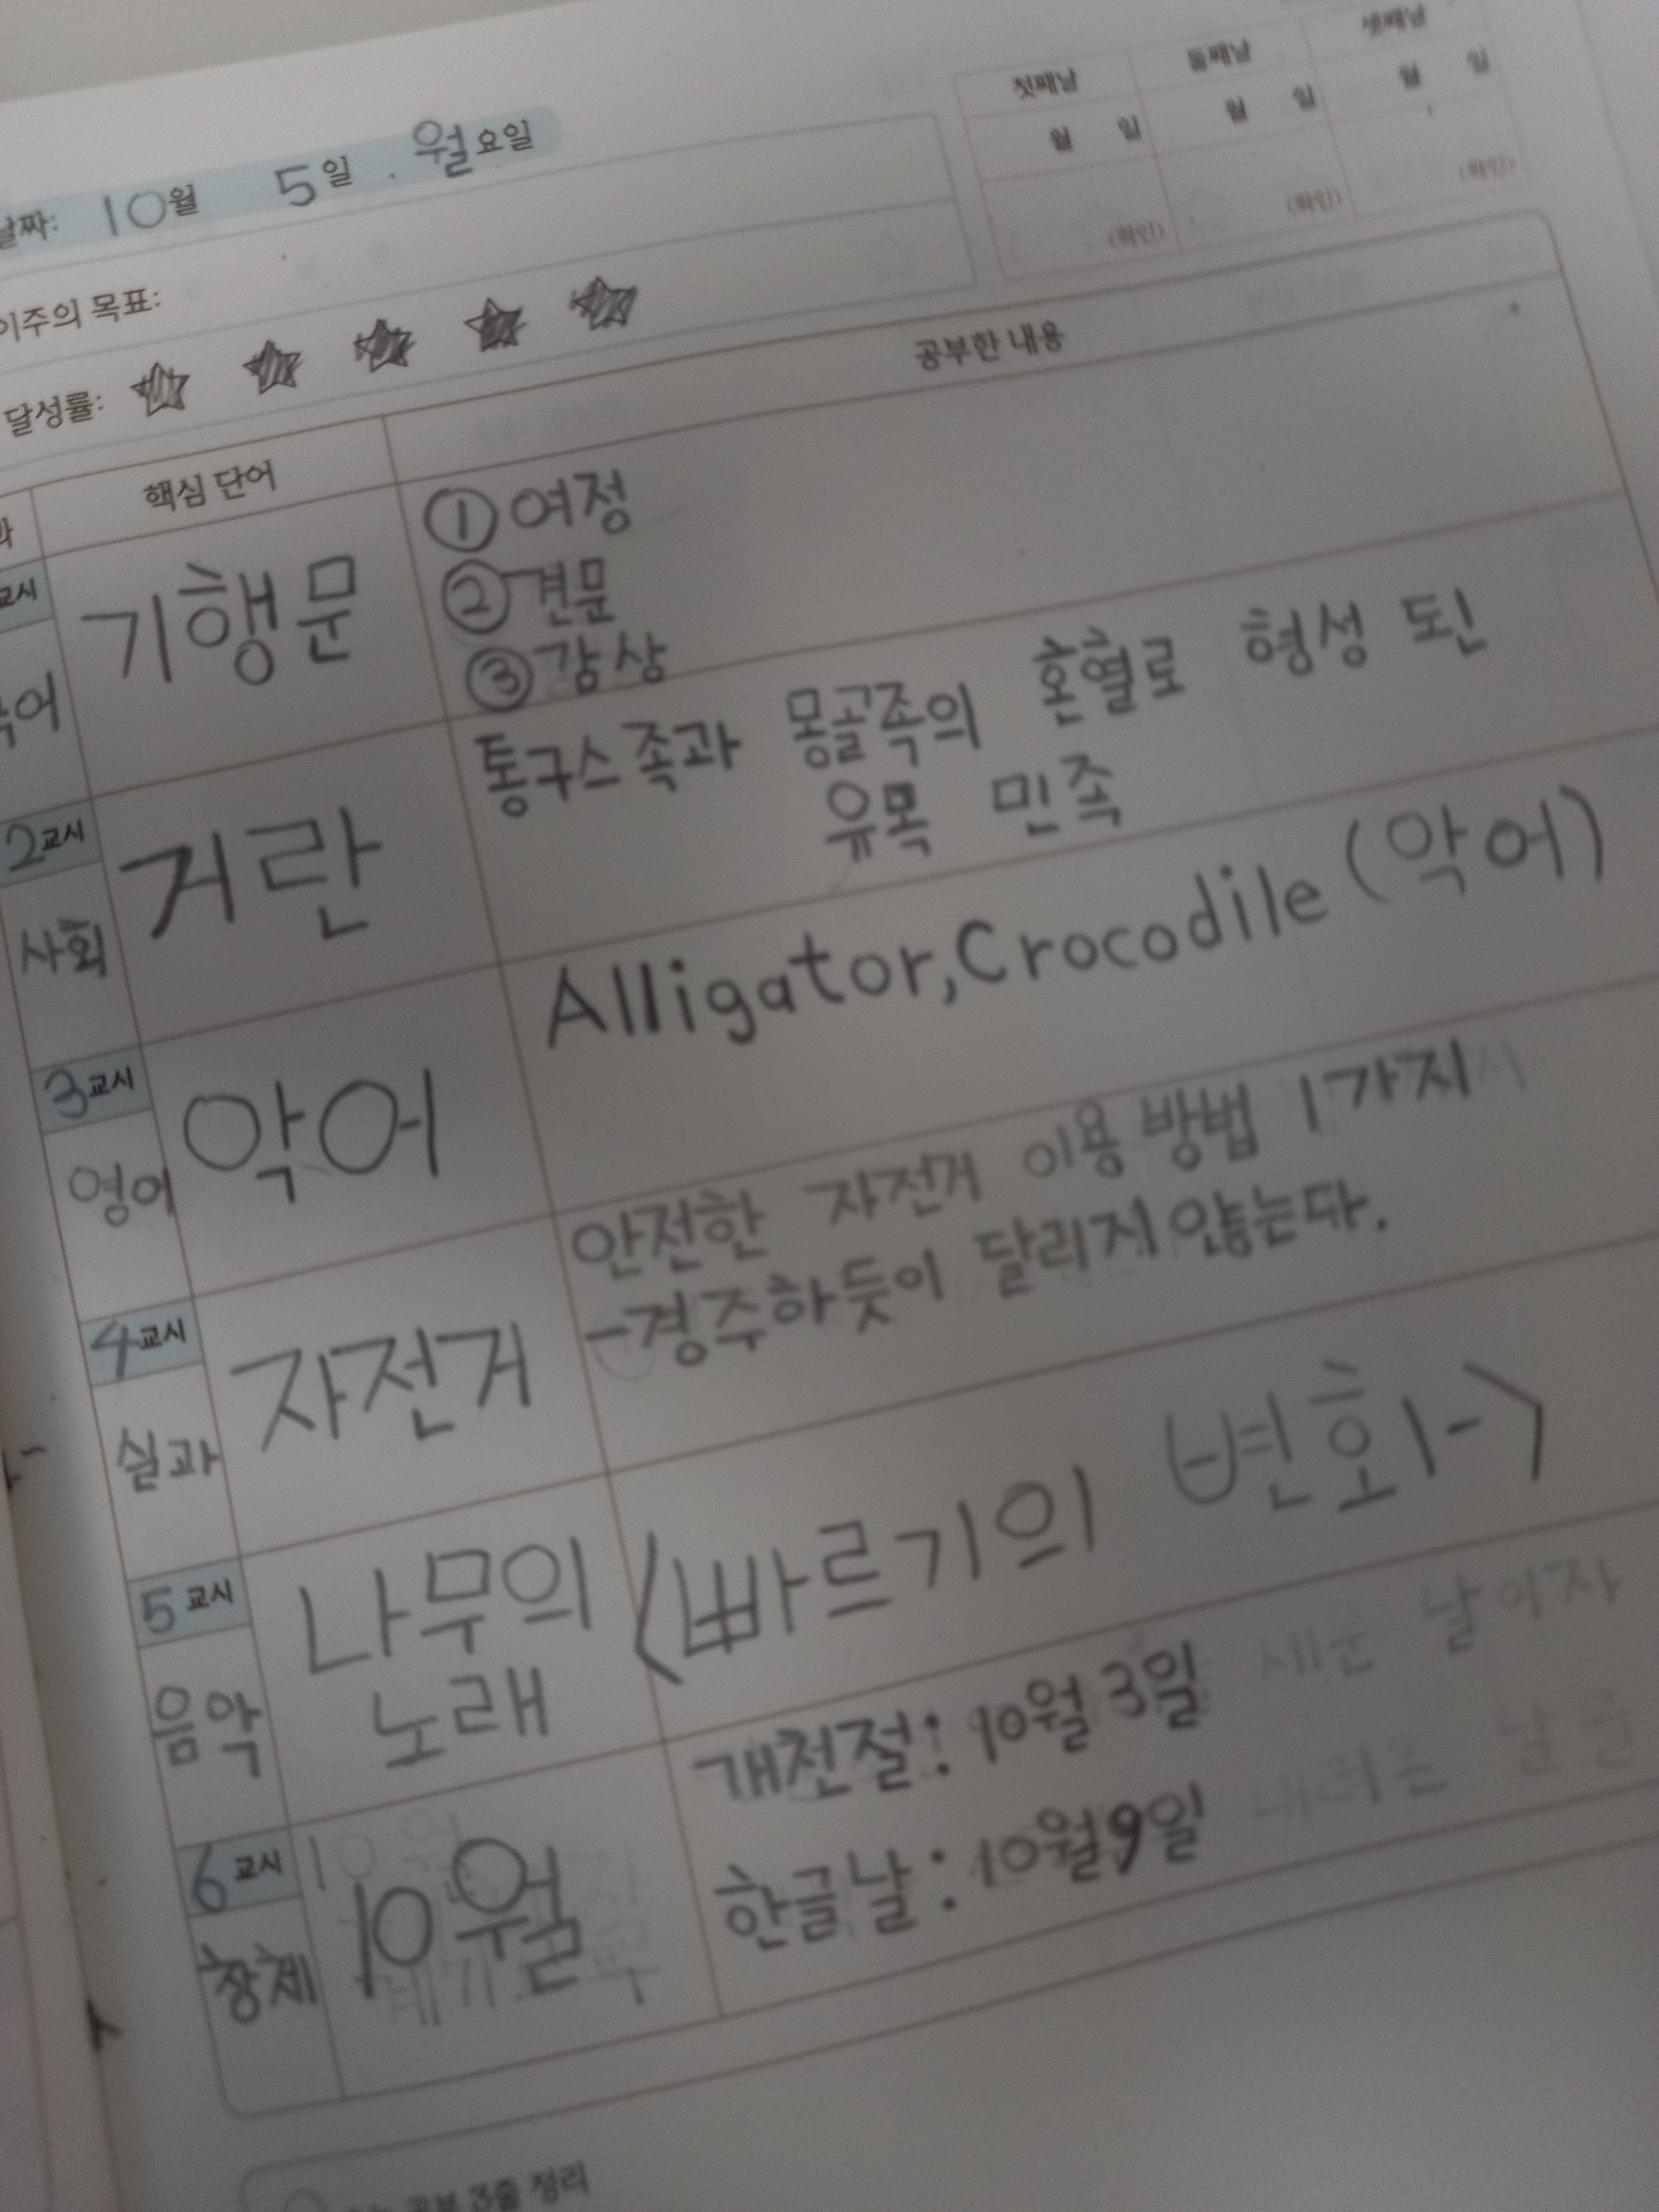 날짜: 10월 5일 . 월요일
첫째날 둘째날 셋째날
월 일 월 일 월 일
(확인) (확인) (확인)
이주의 목표:
달성률: ☆ ☆ ☆ ☆ ☆
핵심 단어 공부한 내용
교시
기행문
① 여정
② 견문
③ 감상
2교시
사회
거란
퉁구스족과 몽골족의 혼혈로 형성 된
유목 민족
3교시
영어
악어
Alligator, Crocodile (악어)
4교시
실과
자전거
안전한 자전거 이용 방법 1가지
-경주하듯이 달리지 않는다.
5교시
음악
나무의
노래
<빠르기의 변화->
6교시
창체
10월
개천절: 10월 3일
한글날: 10월 9일
공부 3줄 정리